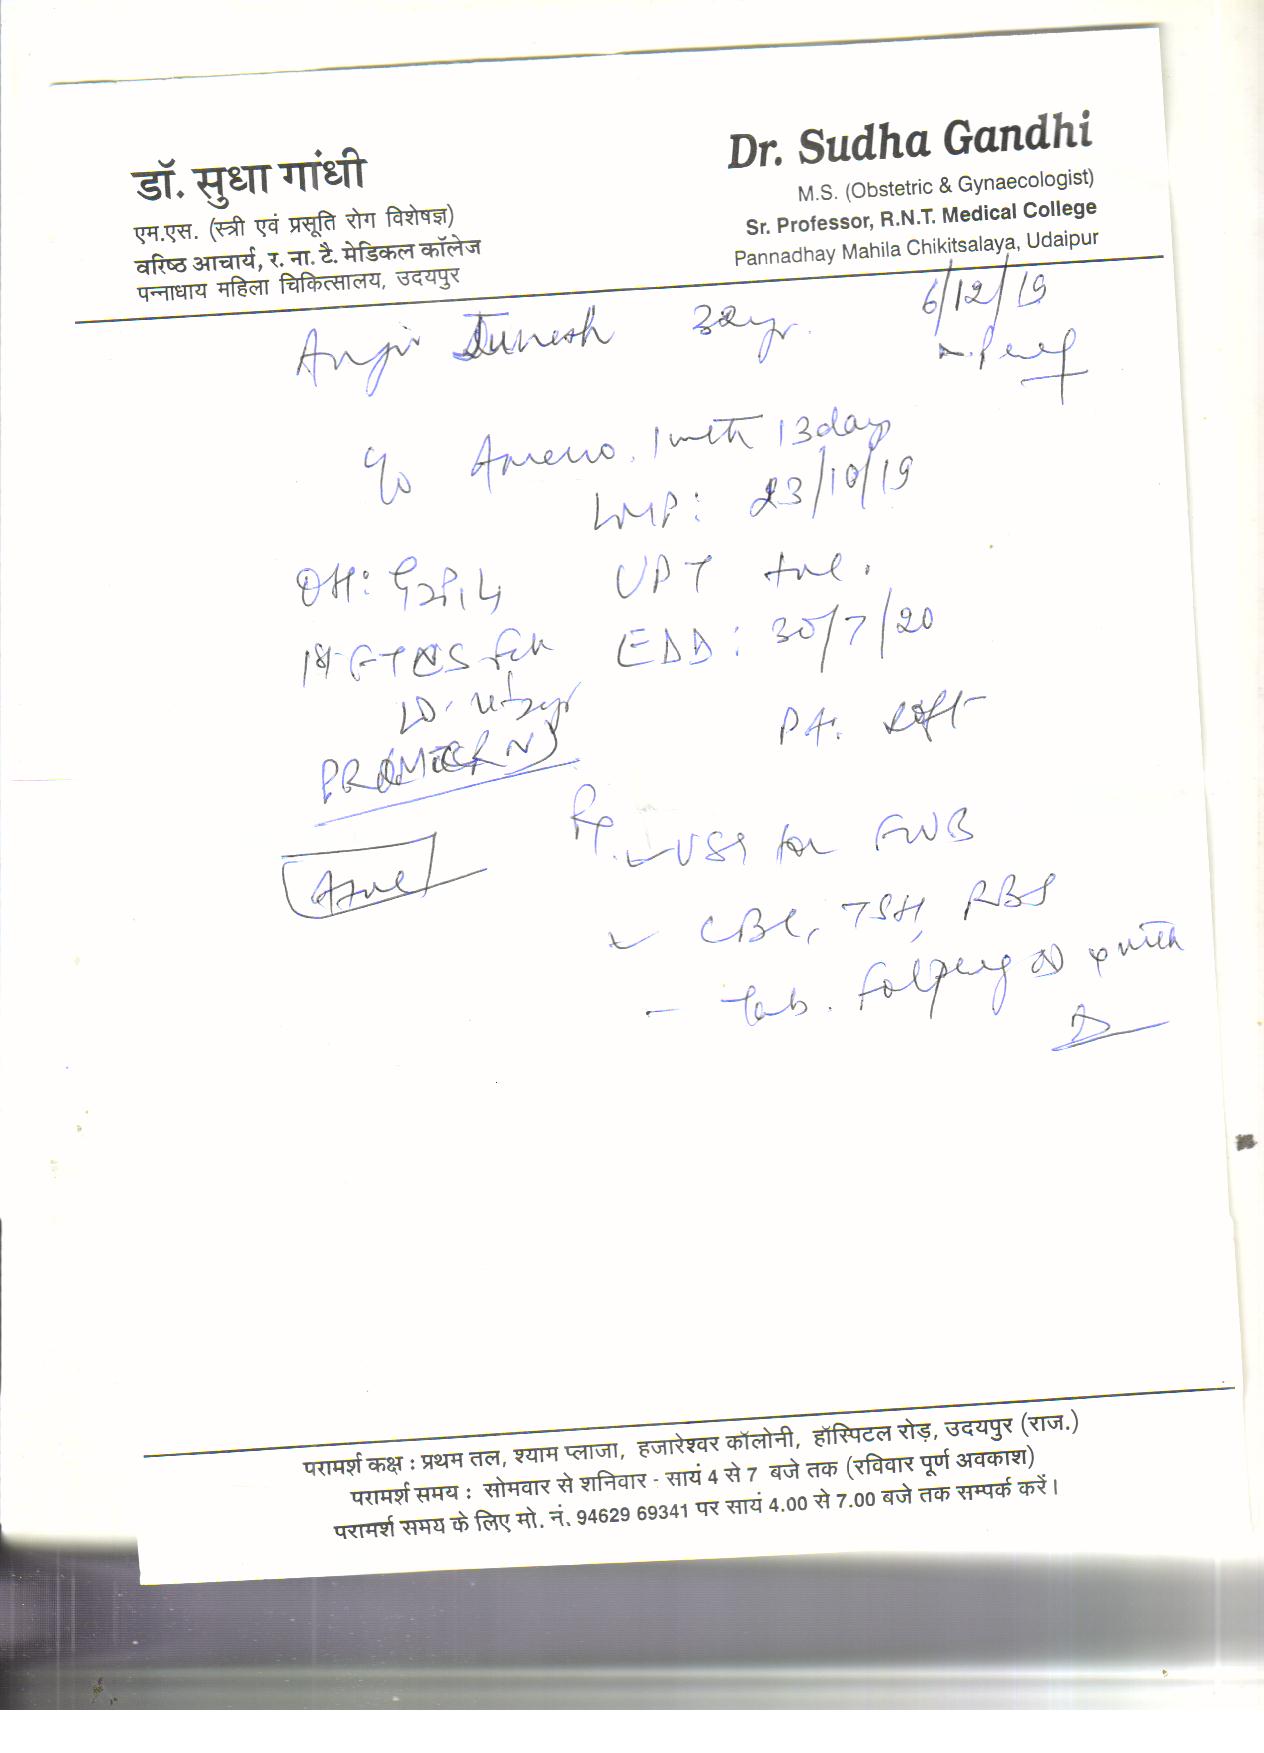 डॉ. सुधा गांधी
एम.एस. (स्त्री एवं प्रसूति रोग विशेषज्ञ)
वरिष्ठ आचार्य, र. ना. टै. मेडिकल कॉलेज
पन्नाधाय महिला चिकित्सालय, उदयपुर
Dr. Sudha Gandhi
M.S. (Obstetric & Gynaecologist)
Sr. Professor, R.N.T. Medical College
Pannadhay Mahila Chikitsalaya, Udaipur
6/12/19
32yr.
Ameno. 1 mth 13 days
LMP: 23/10/19
OH: G2P1L1
UPT +ve.
1st FTND
EDD: 30/7/20
PA: soft
Rp.
USG for FWB
CBC, TSH, RBS
- Tab. Folpreg OD x mth
परामर्श कक्ष : प्रथम तल, श्याम प्लाजा, हजारेश्वर कॉलोनी, हॉस्पिटल रोड़, उदयपुर (राज.)
परामर्श समय : सोमवार से शनिवार - सायं 4 से 7 बजे तक (रविवार पूर्ण अवकाश)
परामर्श समय के लिए मो. नं. 94629 69341 पर सायं 4.00 से 7.00 बजे तक सम्पर्क करें।